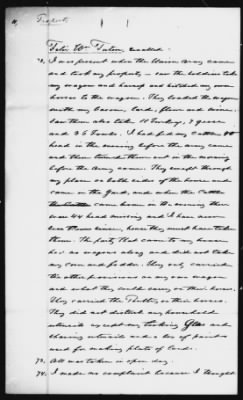 Wm
recalled.
I was present when the Union Army came
and took my property - saw the soldiers take
my wagon and harness and hitched my own
horses to the wagon. They loaded the wagon
with my bacon, lard, flour and
saw them also take 11 turkeys, 7 geese
and 36 I had fed my cattle
head in the evening before the army came
and then turned them out in the morning
before the Army came. They camped through
my place on both sides of the house and
came in the yard, and when the cattle
came home in the evening there
was 44 head missing and I have never
seen them since, hence they must have taken
them. The party that came to my house
had no wagons along and did not take
my corn and fodder. They only carried
the other provisions in my own wagon
and what they could carry on their horses.
They carried the on their horses.
They did not disturb my household
utensils except my looking Glass and
shaving utensils and a lot of
used for making plate of
73. All was taken in open day.
74. I made no complaint because I thought